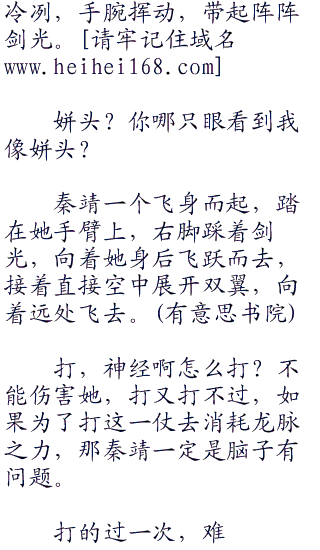 冷冽，手腕挥动，带起阵阵
剑光。[请牢记住域名
www.heihei168.com]
姘头？你哪只眼看到我
像姘头？
秦靖一个飞身而起，踏
在她手臂上，右脚踩着剑
光，向着她身后飞跃而去，
接着直接空中展开双翼，向
着远处飞去。(有意思书院)
打，神经啊怎么打？不
能伤害她，打又打不过，如
果为了打这一仗去消耗龙脉
之力，那秦靖一定是脑子有
问题。
打的过一次，难